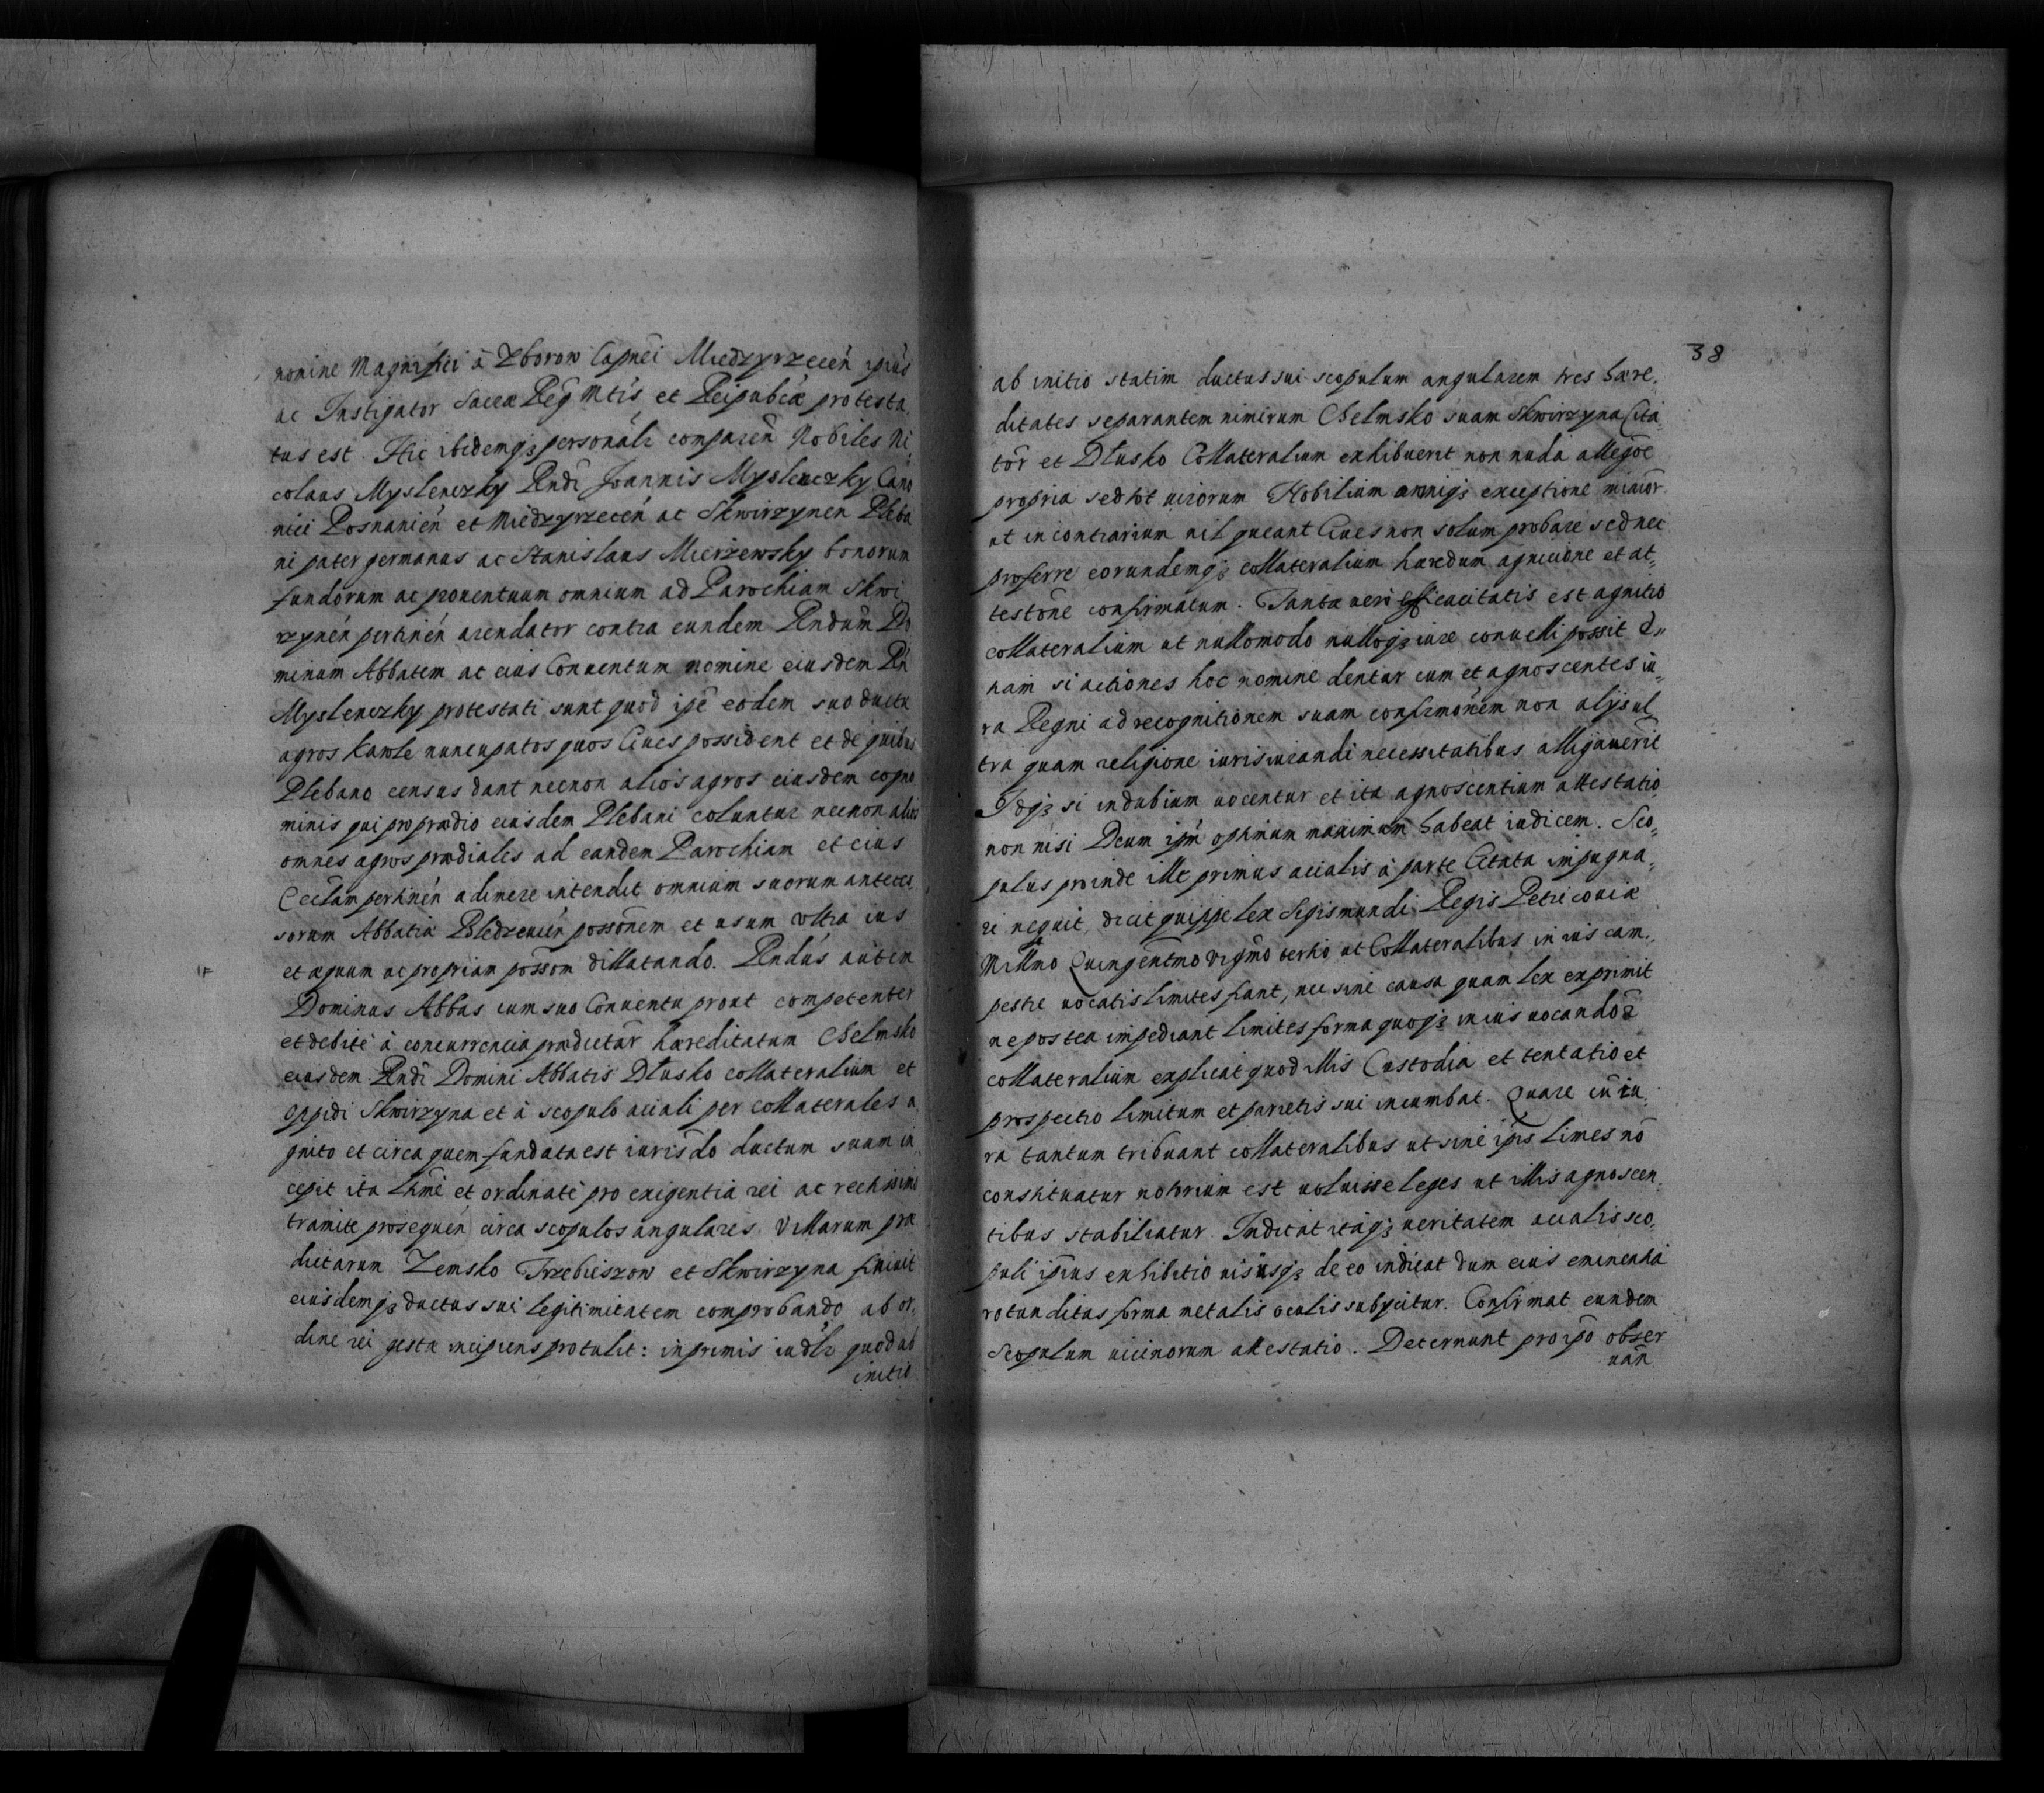 nomine Magnifici à Zborow Capnēi Międzyrzecēn ipius
ac Instigator Sacræ Reg Mtis et Reipubcæ protesta
tus est. Hic ibidemq3 personalr comparēn Nobiles Ni,
colaus Myslenczky Rndi Joannis Myslenczky Cano
nici Posnaniēn et Międzyrzecēn ac Skwirzynen Pleba
ni pater germanus ac Stanislaus Mierzewsky bonorum
fundorum ac prouentuum omnium ad Parochiam Skwi
rzynēn pertinēn arendator contra eundem Rndum Do
minum Abbatem ac eius Conuentum nomine eiusdem Rn
Myslenczky protestati sunt quod ipe eodem suo ductu
agros Kawle nuncupatos quos Ciues possident et de quibus
Plebano census dant necnon alios agros eiusdem cogno
minis qui pro prædio eiusdem Plebani coluntur necnon alios
omnes agros prædiales ad eandem Parochiam et eius
Ecclam pertinēn adimere intendit omnium suorum anteces
sorum Abbatiæ Bledzeuiēn possōnem et usum ultra ius
et æquum ac propriam possom dillatando. Rndus autem
Dominus Abbas cum suo Conuentu prout competenter
et debitè à concurrencia prædictār hæreditatum Chelmsko
eiusdem Rndi Domini Abbatis Dłusko collateralium et
oppidi Skwirzyna et à scopulo aciali per collaterales a
gnito et circa quem fundata est iurisdo ductum suum in
cepit ita lttmè et ordinatè pro exigentia rei ac rectissimo
tramite prosequēn circa scopulos angulares Villarum præ
dictarum Zemsko Trzebiszow et Skwirzyna finiuit
eiusdemq3 ductus sui legitimitatem comprobando ab or,
dine rei gestæ incipiens protulit: inprimis iudlr quod ab
initio
38
ab initio statim ductus sui scopulum angularem tres hære,
ditates separantem nimirum Chelmsko suam Skwirzyna Cita
tōr et Dłusko Collateralium exhibuerit non nuda allegōe
propria sed tot uirorum Nobilium omniq3 exceptione maiōr
ut in contrarium nil queant Ciues non solum probare sed nec
proferre eorundemq3 collateralium hæredum agnicione et at,
testōne confirmatum. Tantæ uerò efficacitatis est agnitio
collateralium ut nullomodo nulloq3 iure conuelli possit Q,,
nam si actiones hoc nomine dentur cum et agnoscentes iu,,
ra Regni ad recognitionem suam confirmōnem non alijs ul
tra quam religione iurisiurandi necessitatibus alligauerit
Idq3 si in dubium uocentur et ita agnoscentium attestatio
non nisi Deum ipm optimum maximum habeat iudicem. Sco,,
pulus proinde ille primus acialis à parte Citata impugna,,
ri nequit, dicit quippe lex Sigismundi Regis Petricouiæ
Millmo Quingentmo vigmo tertio ut Collateralibus in ius cam,,
pestre uocatis limites fiant, nec sine causa quam lex exprimit
ne postea impediant limites forma quoq3 in ius uocandōr
collateralium explicat quod illis Custodia et tentatio et
prospectio limitum et parietis sui incumbat. Quare cū iu
ra tantum tribuant collateralibus ut sine ipis limes nō
constituatur notorium est uoluisse leges ut illis agnoscen
tibus stabiliatur. Indicat itaq3 ueritatem acialis sco,
puli ipius exhibitio uisusq3 de eo indicat dum eius eminentia
rotunditas forma metalis oculis subijcitur. Confirmat eundem
scopulum uicinorum attestatio. Decernunt pro ipo obser
uān